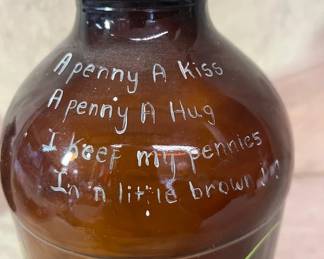 A penny A Kiss
A penny A Hug
I keep my pennies
In a little brown